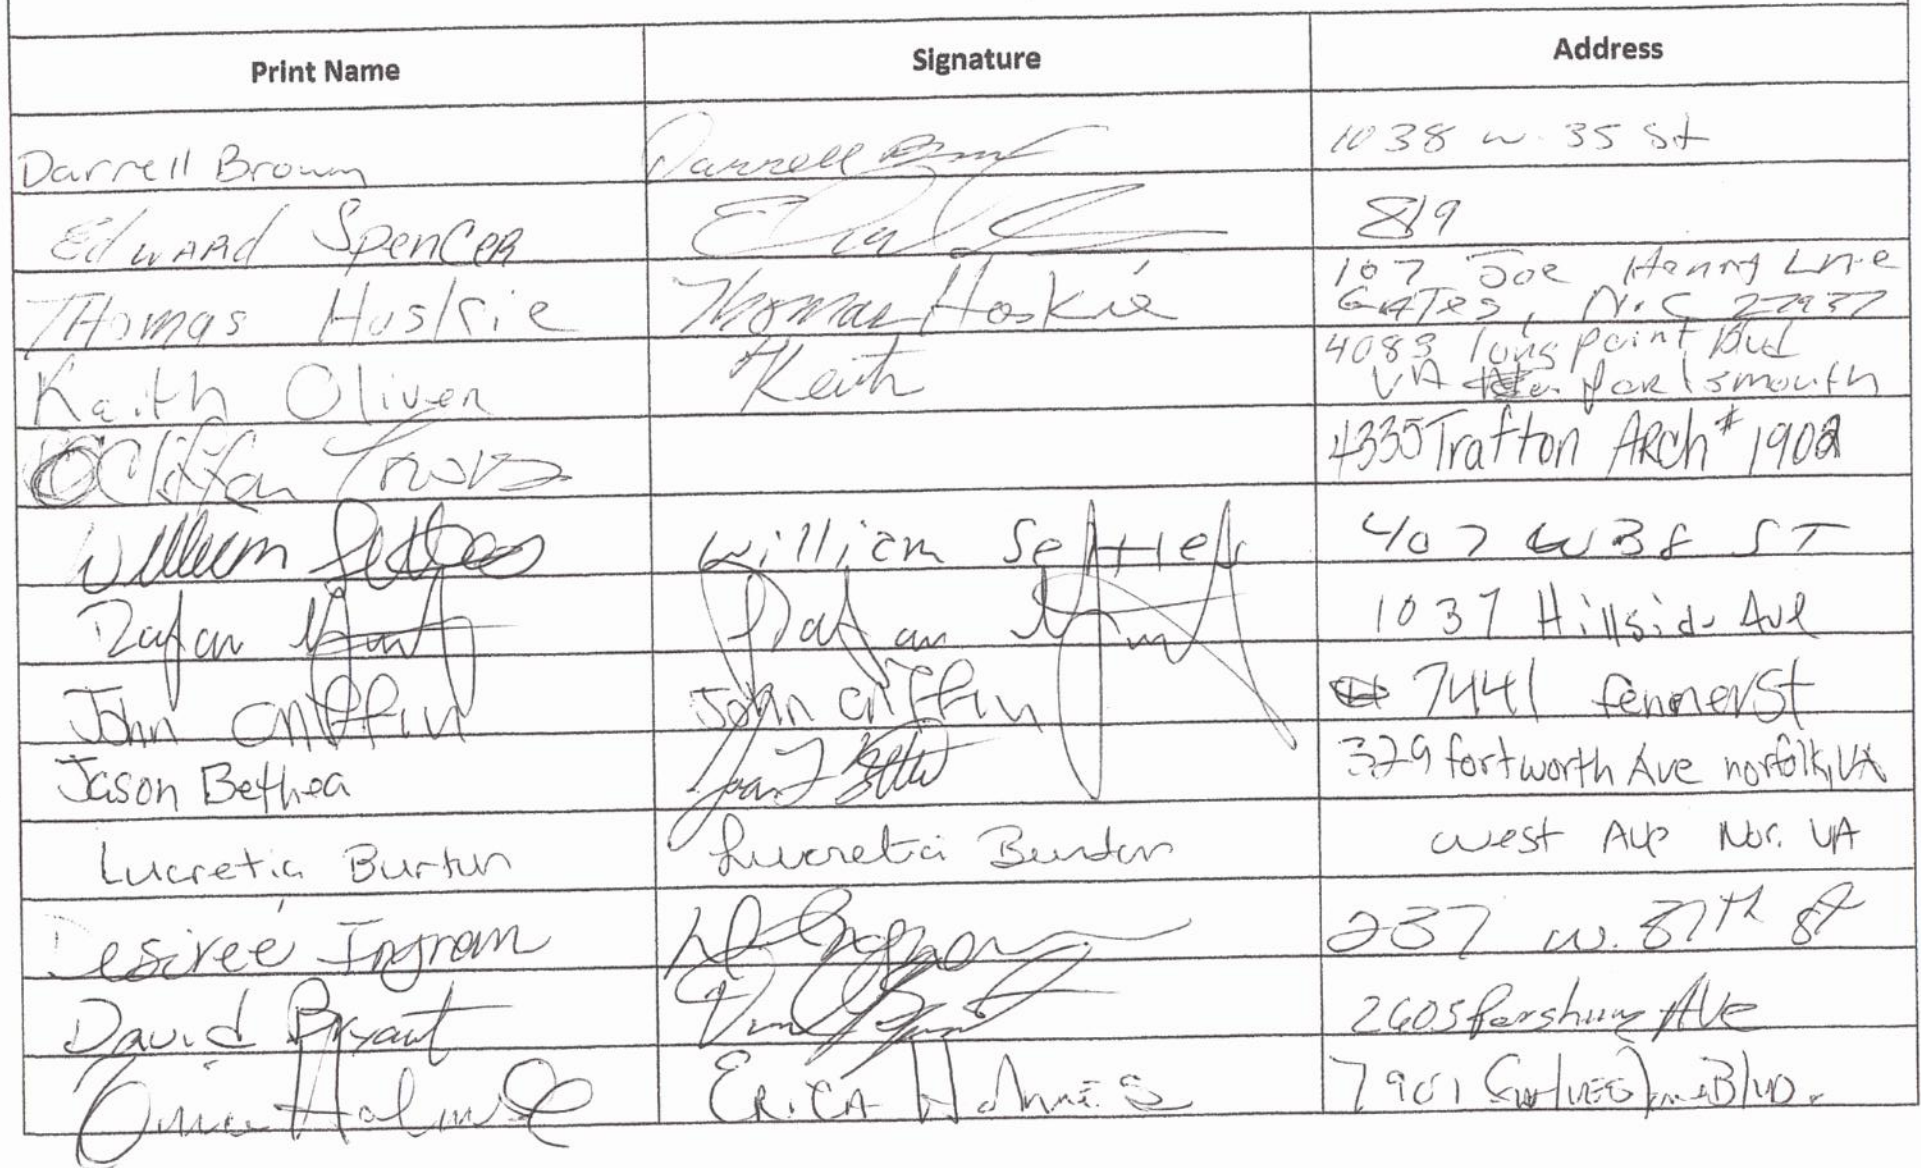 Print Name Signature Address
Darrell Brown Darrell 1038 W. 35 St
Edward Spencer 819
Thomas Hoskie Thomas Hoskie 107 Joe Henry Lne
Gates, N.C 27937
Keith Oliver Keith 4083 long point Blvd
VA portsmouth
4335 Trafton Arch # 1902
William William 407 W 38 ST
1037 Hillside Ave
John Griffin John Griffin 7441 fenner St
Jason Bethea 379 fortworth Ave norfolk, VA
Lucretia Burton Lucretia Burton West Ave Nor. VA
Desireé Ingram D Ingram 237 W. 37th St
David Bryant 2605 Pershing Ave
Erica Holmes ERiCA 7901 Blvd.